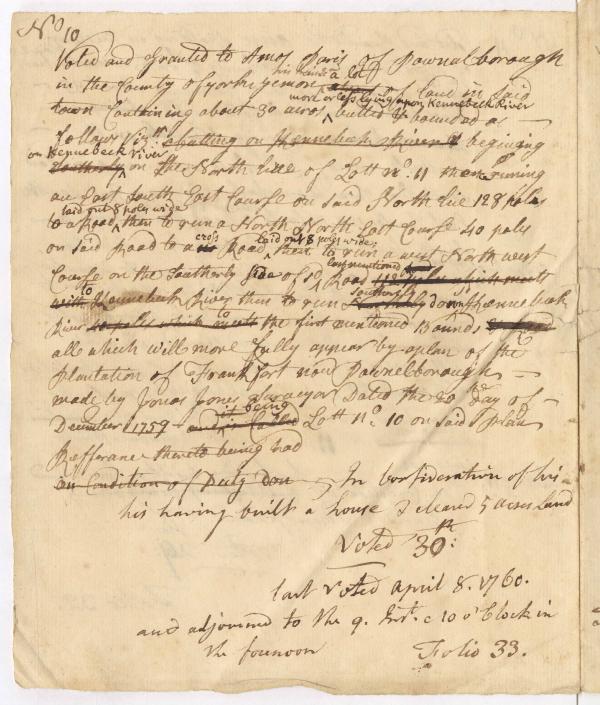 No 10
Voted and Granted to Amos Paris of Pownalborough
in the County of york yemon his heirs a lot of land in said
more or less lying upon Kennebeck River
town Containing about 30 acres butted & bounded as
follows Vizt butting on Kennebeck River begining
on Kennebeck River
Southerly on the North line of Lott no. 11 then runing
an East South East Course on said North line 128 poles
laid out 8 poles wide
to a Road then to run a North North East Course 40 poles
cross laid out 8 poles wide
on said Road to a Road then to run a west North west
last mentioned
Course on the Southerly Side of sd Road which meets
to southerly
with Kennebeck River then to run down sd Kennebeck
to
River 40 poles which meets the first mentioned Bounds
all which will more fully appear by a plan of the
plantation of Frankfort now Pownelborough
made by Jonas Jones Surveyor Dated the 20 day of
it being
December 1759 and is called Lott no. 10 on said plan
Refferance thereto being had
on Condition of Duty don In Consideration of his
his having built a house & cleared 5 acres Land
Voted 30th:
last voted April 8. 1760.
and adjorned to the 9. Inst. 10 o'Clock in
the founoon Folio 33.